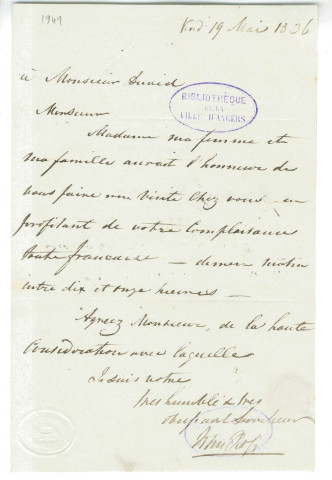 1949
Vend 19 Mai 1836
à Monsieur David
BIBLIOTHÈQUE
DE LA
VILLE D'ANGERS
Monsieur
Madame ma femme et
ma famille auront l'honneur de
vous faire une visite chez vous en
profitant de votre complaisance
toute francaise — demain matin
entre dix et onze heures —
Agreez Monsieur, de la haute
Consideration avec laquelle
Je suis votre
tres humble & tres
obeissant Serviteur
John Ross